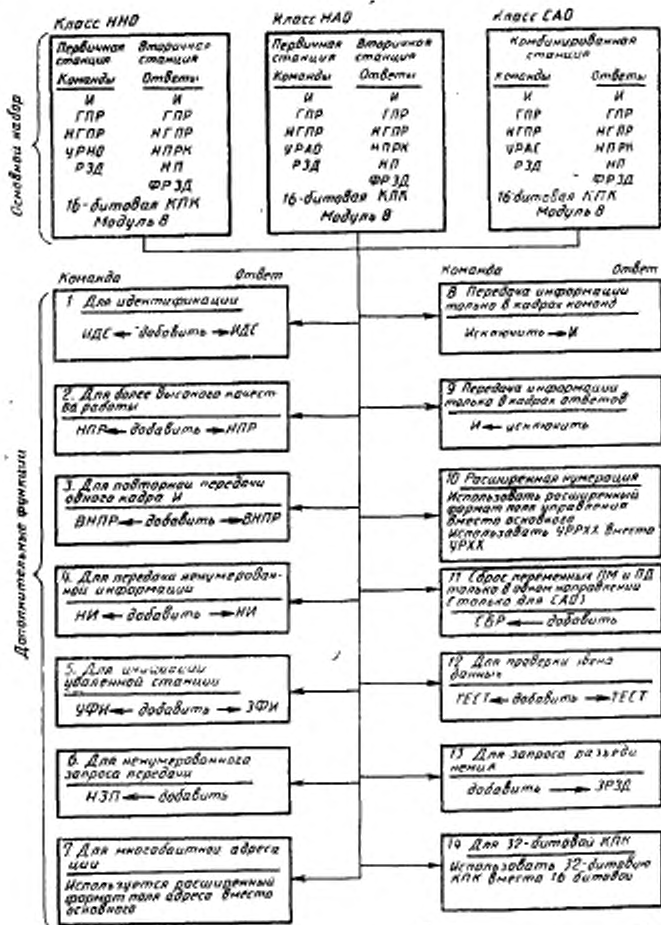 Класс ННО
Первичная Вторичная
станция станция
Команды Ответы
И И
ГПР ГПР
НГПР НГПР
УРНО НПРК
РЗД НП
ФРЗД
16-битовая КПК
Модуль 8
Класс НАО
Первичная Вторичная
станция станция
Команды Ответы
И И
ГПР ГПР
НГПР НГПР
УРАО НПРК
РЗД НП
ФРЗД
16-битовая КПК
Модуль 8
Класс САО
Комбинированная
станция
Команды Ответы
И И
ГПР ГПР
НГПР НГПР
УРАС НПРК
РЗД НП
ФРЗД
16-битовая КПК
Модуль 8
Основной набор
Дополнительные функции
Команда Ответ
1 Для идентификации
ИДС добавить ИДС
2. Для более высокого качест
ва работы
НПР добавить НПР
3. Для повторной передачи
одного кадра И
ВНПР добавить ВНПР
4. Для передача ненумерован-
ной информации
НИ добавить НИ
5. Для инициации
удаленной станции
УФИ добавить ЗФИ
6. Для ненумерованного
запроса передачи
НЗП добавить
7 Для многобайтной адреса
ции
Используется расширенный
формат поля адреса вместо
основного
Команда Ответ
8 Передача информации
только в кадрах команд
Исключить И
9 Передача информации
только в кадрах ответов
И исключить
10 Расширенная нумерация
Использовать расширенный
формат поля управления
вместо основного
Использовать УРРХХ вместо
УРХХ
11 Сброс переменных ПМ и ПД
только в одном направлении
(только для САО)
СБР добавить
12 Для проверки звена
данных
ТЕСТ добавить ТЕСТ
13 Для запроса разъеди
нения
добавить ЗРЗД
14 Для 32-битовой КПК
Использовать 32-битовую
КПК вместо 16 битовой